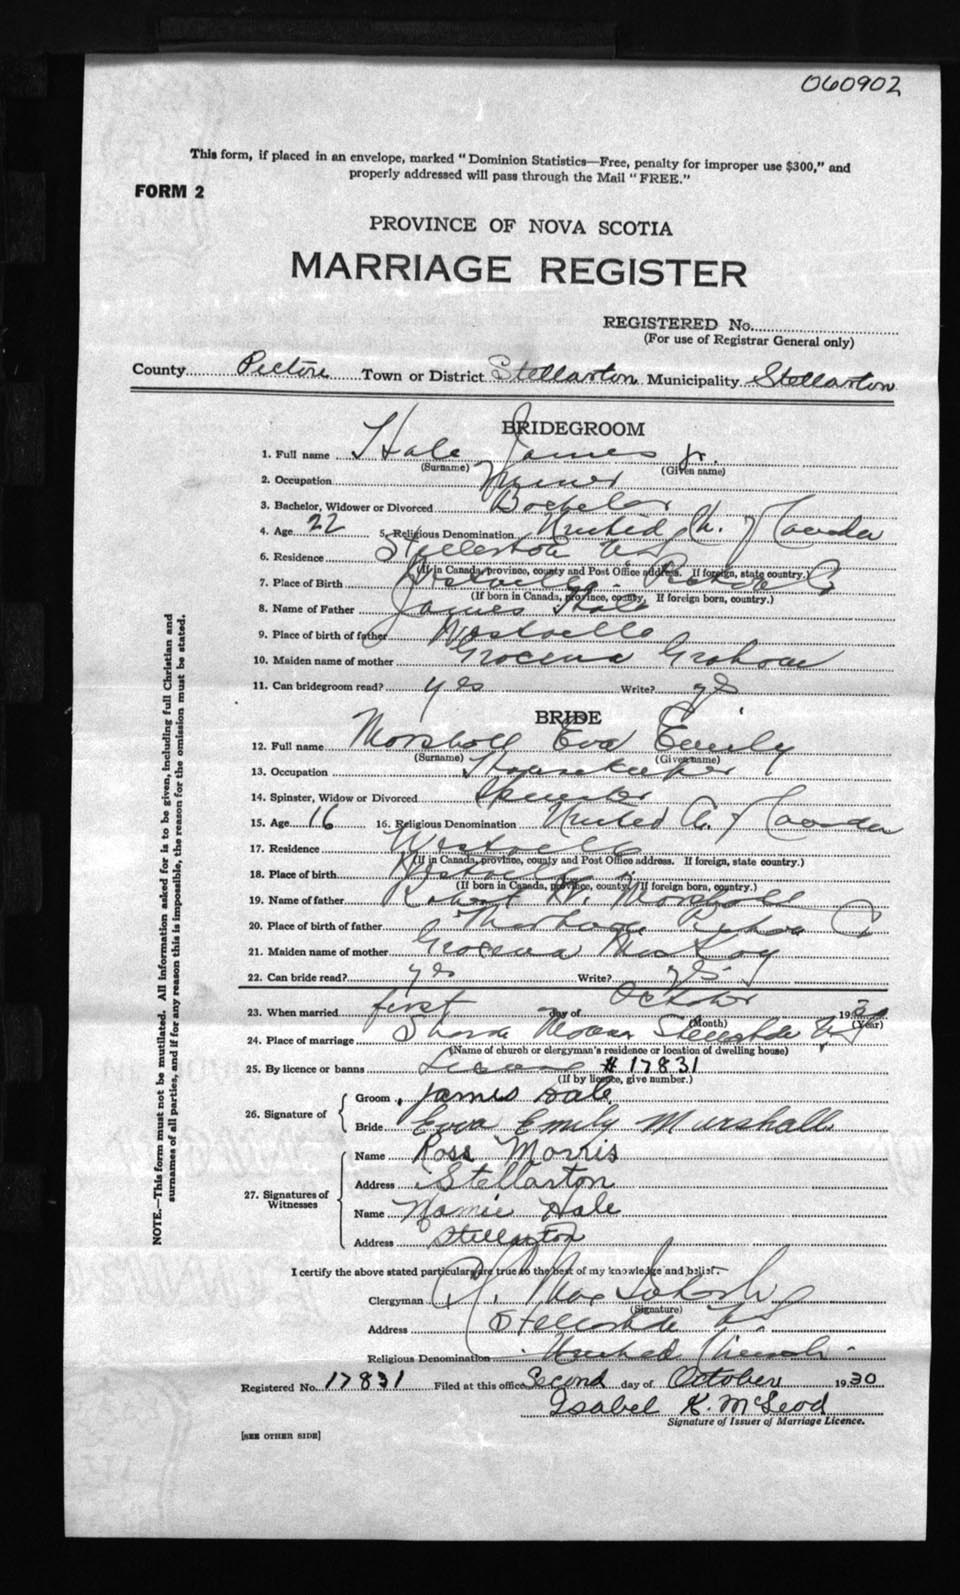 060902
This form, if placed in an envelope, marked "Dominion Statistics—Free, penalty for improper use $300," and
properly addressed will pass through the Mail "FREE."
FORM 2
PROVINCE OF NOVA SCOTIA
MARRIAGE REGISTER
REGISTERED No.
(For use of Registrar General only)
County Pictou Town or District Stellarton Municipality Stellarton
BRIDEGROOM
1. Full name Hale James Jr.
(Surname) (Given name)
2. Occupation Miner
3. Bachelor, Widower or Divorced Bachelor
4. Age 22 5. Religious Denomination United Ch. of Canada
6. Residence Stellarton N.S.
(If in Canada, province, county and Post Office address. If foreign, state country.)
7. Place of Birth Westville Pictou Co
(If born in Canada, province, county. If foreign born, country.)
8. Name of Father James Hale
9. Place of birth of father Westville
10. Maiden name of mother Graham
11. Can bridegroom read? yes Write? yes
BRIDE
12. Full name Marshall Eva Emily
(Surname) (Given name)
13. Occupation Housekeeper
14. Spinster, Widow or Divorced Spinster
15. Age 16 16. Religious Denomination United Ch. of Canada
17. Residence Westville
(If in Canada, province, county and Post Office address. If foreign, state country.)
18. Place of birth Westville
(If born in Canada, province, county. If foreign born, country.)
19. Name of father Robert Marshall
20. Place of birth of father Thorburn Pictou Co
21. Maiden name of mother MacKay
22. Can bride read? yes Write? yes
23. When married first day of October 1930
(Month) (Year)
24. Place of marriage Sharon Manse Stellarton N.S.
(Name of church or clergyman's residence or location of dwelling house)
25. By licence or banns License # 17831
(If by licence, give number.)
26. Signature of
Groom James Hale
Bride Evva Emily Murshall
27. Signatures of
Witnesses
Name Ross Morris
Address Stellarton
Name Mamie Hale
Address Stellarton
I certify the above stated particulars are true to the best of my knowledge and belief.
Clergyman MacIntosh
(Signature)
Address Stellarton N.S.
Religious Denomination United Church
Registered No. 17831 Filed at this office Second day of October 1930
Isabel K. McLeod
Signature of Issuer of Marriage Licence.
[SEE OTHER SIDE]
NOTE.—This form must not be mutilated. All information asked for is to be given, including full Christian and
surnames of all parties, and if for any reason this is impossible, the reason for the omission must be stated.